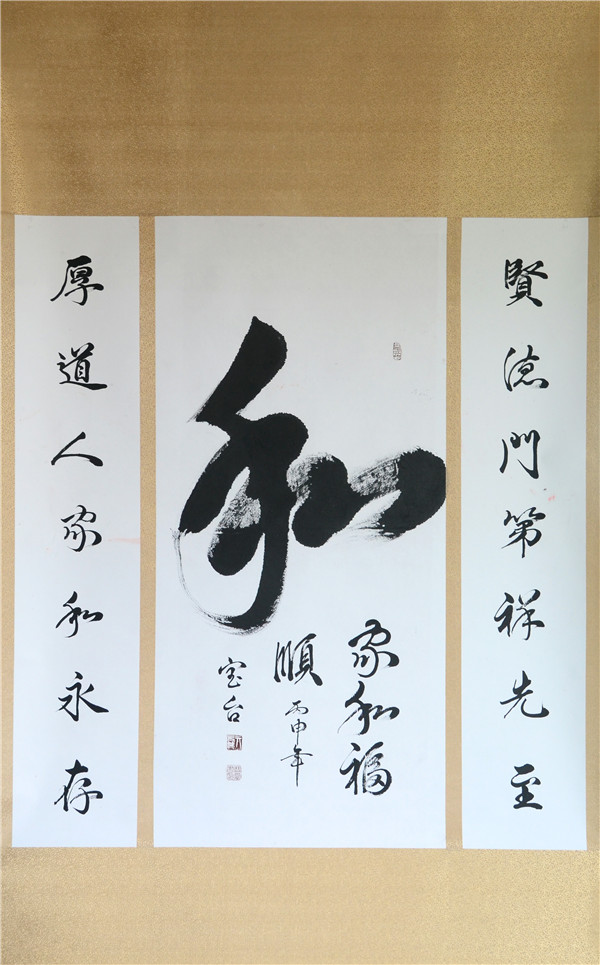 賢德門第祥先至
和
家和福
順 丙申年
宝台
厚道人家和永存